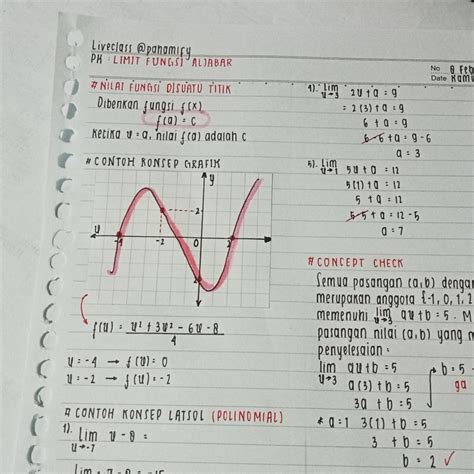 Liveclass @pahamify
PH : LIMIT FUNGSI ALJABAR
No 8 Feb
Date Kamu
# NILAI FUNGSI DISUATU TITIK
Diberikan fungsi f(x)
f(a) = c
Ketika x = a, nilai f(a) adalah c
# CONTOH KONSEP GRAFIK
y
2
x -4 -2 0 2
f(x) = x² + 3x² - 6x - 8
4
x = -4 → f(x) = 0
x = -2 → f(x) = -2
# CONTOH KONSEP LATSOL (POLINOMIAL)
1). lim x - 8 =
x→-7
lim -7 - 8 = -15
4). lim 2x + a = 9
x→3
= 2(3) + a = 9
6 + a = 9
6 - 6 + a = 9 - 6
a = 3
5). lim 5x + a = 12
x→1
5(1) + a = 12
5 + a = 12
5 - 5 + a = 12 - 5
a = 7
# CONCEPT CHECK
Semua pasangan (a,b) dengan
merupakan anggota {-1, 0, 1, 2
memenuhi lim ax + b = 5. M
x→3
pasangan nilai (a,b) yang m
penyelesaian :
lim ax + b = 5
x→3
a(3) + b = 5
3a + b = 5
b = 5 -
ga
* a = 1 3(1) + b = 5
3 + b = 5
b = 2 ✓